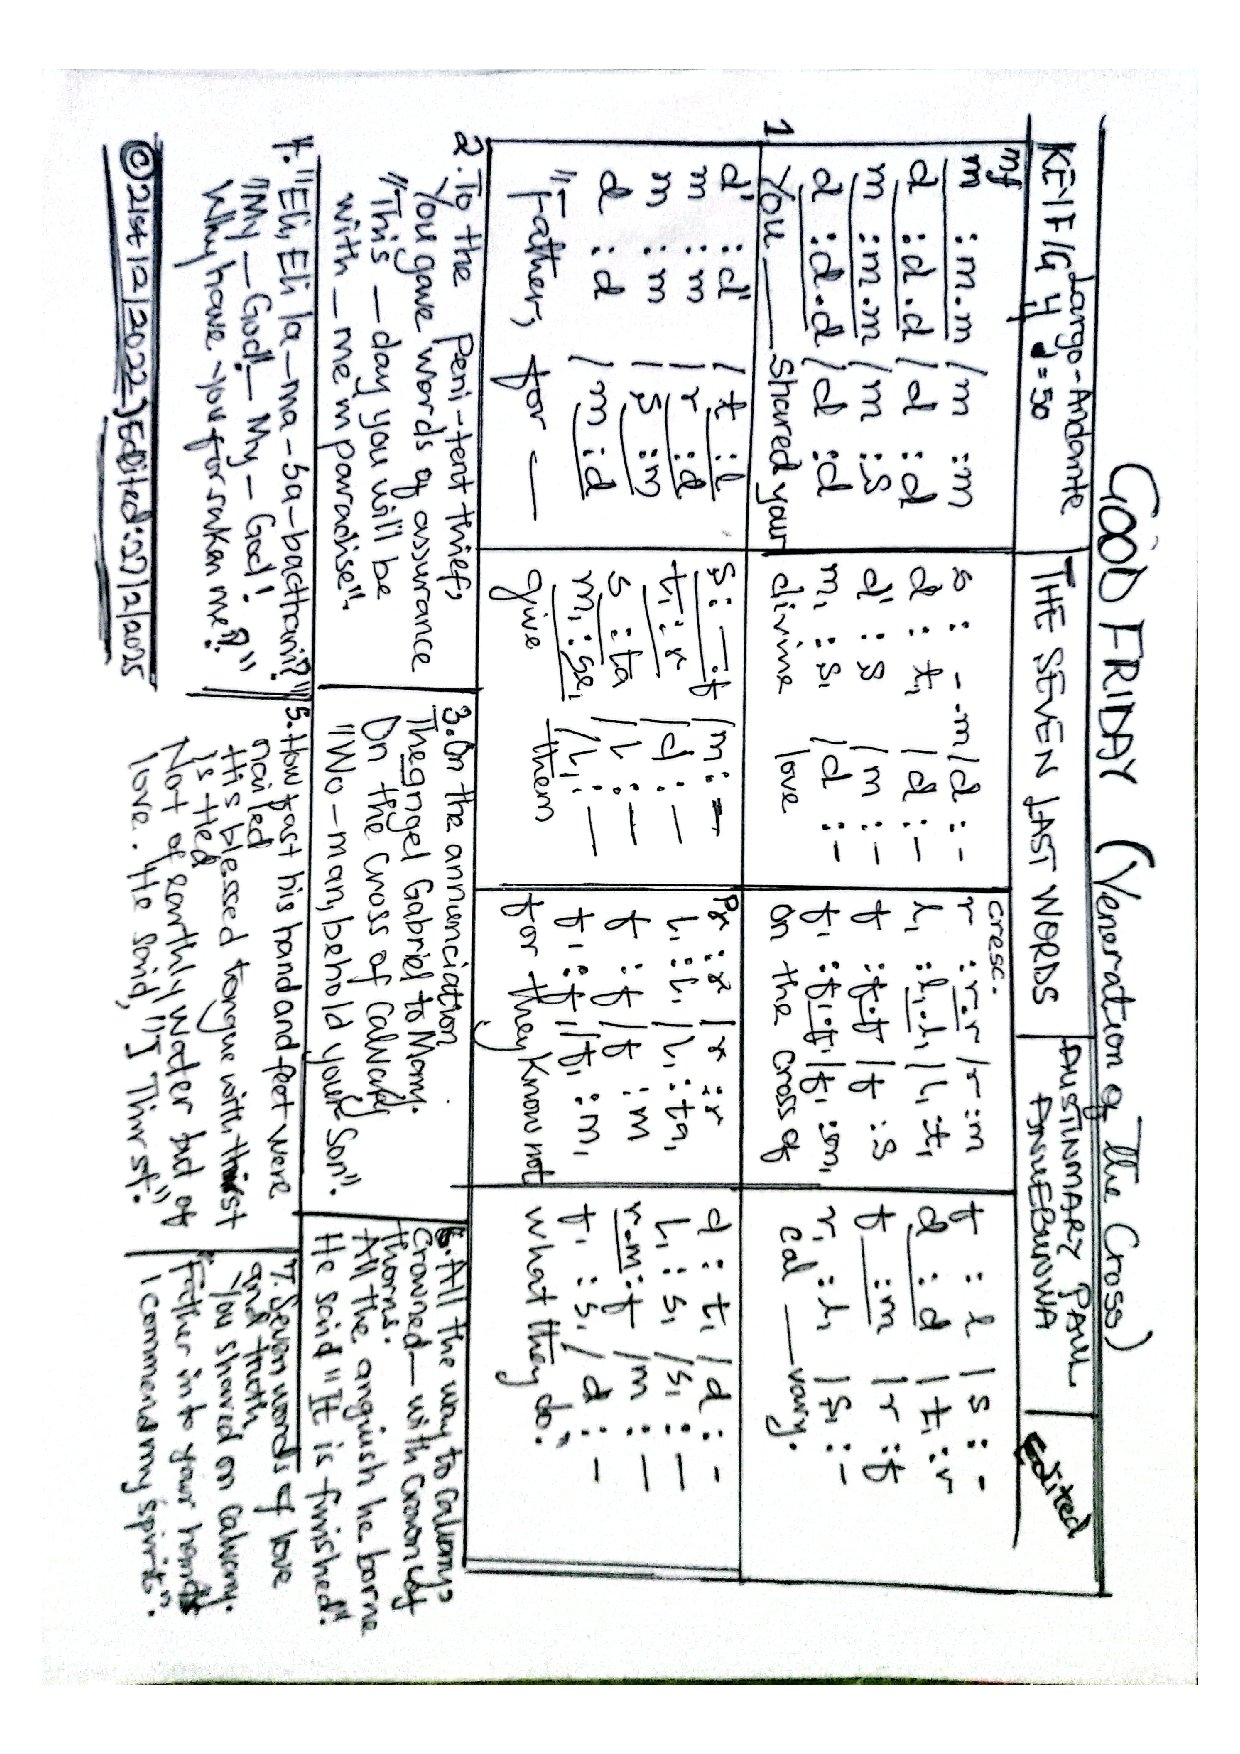 GOOD FRIDAY (Veneration of The Cross)
KEY F/G 4 ♩=50 Largo-Andante
THE SEVEN LAST WORDS
AUSTINMARY PAUL
Edited
mf
cresc.
m :m.m /m :m
s : - .m/d : -
r :r.r /r :m
f : l /s : -
d :d.d /d :d
d : t₁ /d : -
l₁ :l₁.l₁ /l₁ :t₁
d : d /t₁ :r
m :m.m /m :s
d' : s /m : -
f :f.f /f :s
f :m /r :f
d :d.d /d :d
m₁ : s₁ /d : -
f₁ :f₁.f₁ /f₁ :m₁
r₁ :l₁ /s₁ : -
1 You ___ shared your
divine love
on the cross of
cal ___ vary.
d' : d' /t : l
s : - : f /m : -
P r : r /r : r
d : t₁ /d : -
m : m /r : d
t₁ : r /d : —
l₁ : l₁ /l₁ : ta₁
l₁ : s₁ /s₁ : —
m : m /s : m
s : ta /l : —
f : f /f : m
r.m : f /m : —
d : d /m : d
m₁ : se₁ /l₁ : —
f₁ : f₁ /f₁ : m₁
f₁ : s₁ /d : —
"Father, for —
give them
for they know not
what they do."
2. To the Peni-tent thief,
You gave words of assurance
"This — day you will be
with — me in paradise".
3. On the annunciation
The angel Gabriel to Mary.
On the Cross of Calvary
"Wo-man, behold your Son".
6. All the way to Calvary,
Crowned — with Crown of
thorns.
All the anguish he borne
He said "It is finished".
4. "Eli, Eli la-ma-sa-bacthani?"
"My — God! — My — God!
Why have — you forsaken me?"
5. How fast his hand and feet were
nailed
His blessed tongue with thirst
is tied
Not of earthly water but of
love. He said, "I Thirst".
7. Seven words of love
and truth
You shared on Calvary.
"Father in to your hands
I commend my spirit".
© 21st 12/2022, Edited: 27/2/2025